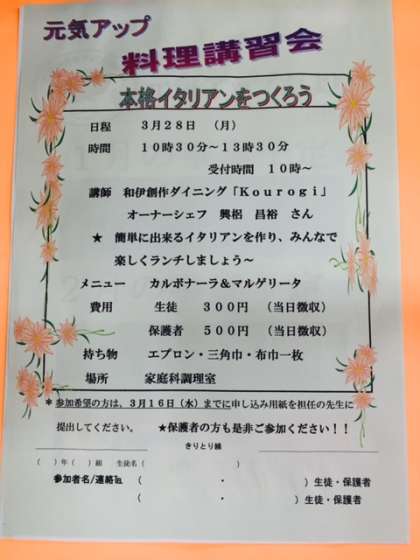 元気アップ
料理講習会
本格イタリアンをつくろう
日程　３月２８日　（月）
時間　１０時３０分～１３時３０分
受付時間　１０時～
講師　和伊創作ダイニング「Ｋｏｕｒｏｇｉ」
オーナーシェフ　興梠　昌裕　さん
★　簡単に出来るイタリアンを作り、みんなで
楽しくランチしましょう～
メニュー　カルボナーラ＆マルゲリータ
費用　生徒　３００円　（当日徴収）
保護者　５００円　（当日徴収）
持ち物　エプロン・三角巾・布巾一枚
場所　家庭科調理室
＊参加希望の方は、３月１６日（水）までに申し込み用紙を担任の先生に
提出してください。　★保護者の方も是非ご参加ください！！
きりとり線
（　）年（　）組　生徒名（　　　）
参加者名/連絡℡　（　　・　　）生徒・保護者
（　　・　　）生徒・保護者